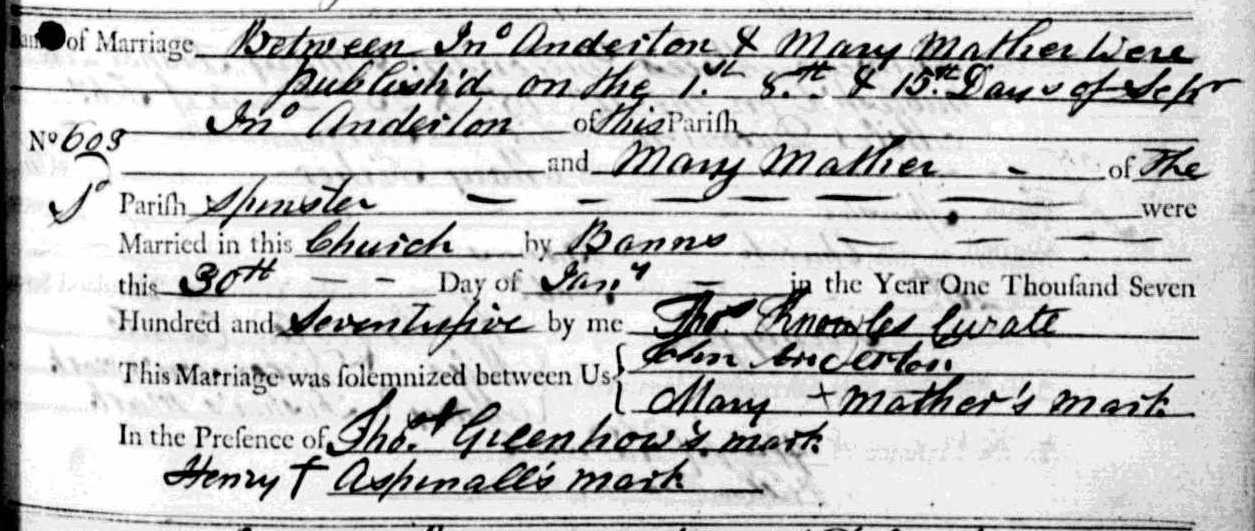 of Marriage Between Jnº Anderton & Mary Mather Were
publish'd on the 1.st 8.th & 15.th Days of Sepr
Jnº Anderton of this Parish
Nº 603
and Mary Mather - of The
Parish Spinster were
Married in this Church by Banns
this 30th Day of Jany in the Year One Thousand Seven
Hundred and Seventyfive by me Thos. Knowles Curate
This Marriage was solemnized between Us { John Anderton
Mary + Mather's mark
In the Presence of Tho.s + Greenhow's mark
Henry + Aspinall's mark